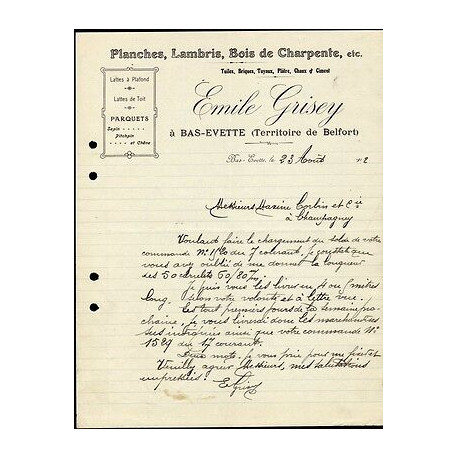 Planches, Lambris, Bois de Charpente, etc.
Tuiles, Briques, Tuyaux, Plâtre, Chaux & Ciment
Lattes à Plafond
Lattes de Toit
PARQUETS
Sapin
Pitchpin
et Chêne
Emile Grisey
à BAS-EVETTE (Territoire de Belfort)
Bas-Evette, le 23 Août 2
Messieurs Maxim Corbin et Cie
à Champagney
Voulant faire le chargement du solde de votre
commande du 7 courant, je constate que
vous avez oublié de me donner la longueur
des 50 carrelets 60/80
Je puis vous les livrer en 4 ou mètres
long, selon votre volonté et à lettre vue.
Les tout premiers jours de la semaine pro-
chaine, je vous livrerai donc les marchandises
ainsi que votre commande No
1529 du 17 courant.
Deux mots, je vous prie pour me fixer et
Veuillez agréer Messieurs, mes salutations
empressées.
EGrisey